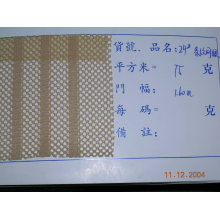 貨號、品名:24#
平方米= 75 克
門 幅: 160m
每 碼= 克
備 註:
11.12.2004